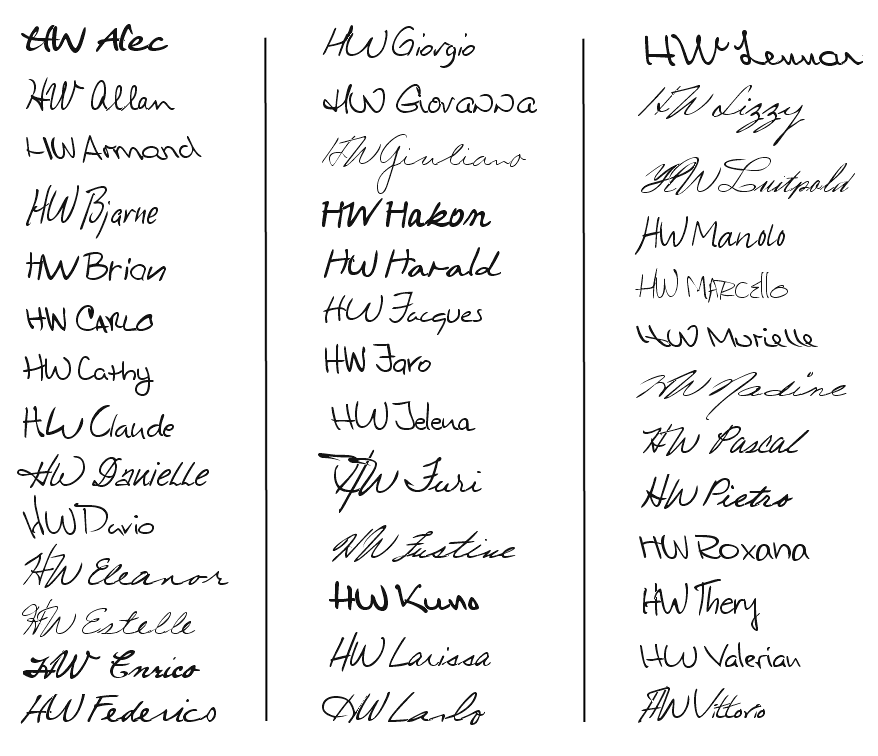 HW Alec
HW Allan
HW Armand
HW Bjarne
HW Brian
HW CARLO
HW Cathy
HW Claude
HW Danielle
HW Dario
HW Eleanor
HW Estelle
HW Enrico
HW Federico
HW Giorgio
HW Giovanna
HW Giuliano
HW Hakon
HW Harald
HW Jacques
HW Jaro
HW Jelena
HW Juri
HW Justine
HW Kuno
HW Larissa
HW Larlo
HW Lennar
HW Lizzy
HW Luitpold
HW Manolo
HW MARCEllo
HW Murielle
HW Nadine
HW Pascal
HW Pietro
HW Roxana
HW Thery
HW Valerian
HW Vittorio